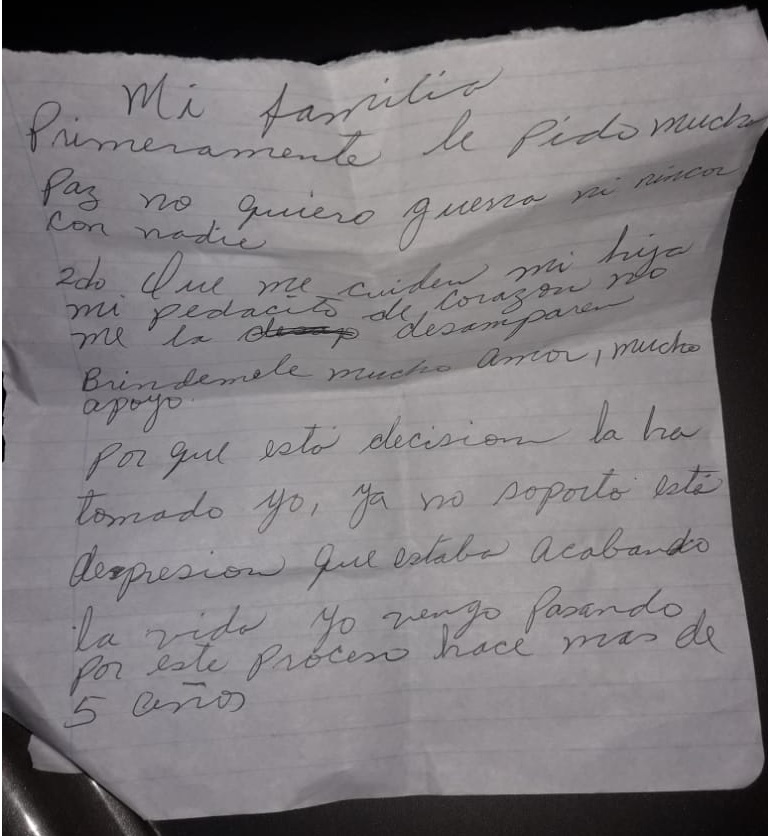 Mi familia
Primeramente le Pido mucha
Paz no quiero guerra ni rincor
con nadie
2do Que me cuiden mi hija
mi pedacito de corazon no
me la desamparen
Brindemele mucho amor, mucho
apoyo.
Por que está decision la ha
tomado yo, ya no soporto está
depresion que estaba acabando
la vida yo vengo Pasando
por este proceso hace mas de
5 años